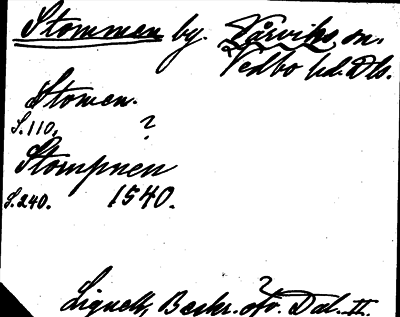 Stommen by. Tårviks sn.
Vedbo hd. Dls.
Stomen.
S.110. ?
Stompnen
S.240. 1540.
?
Lignell, Beskr. öfv. Dal. II.